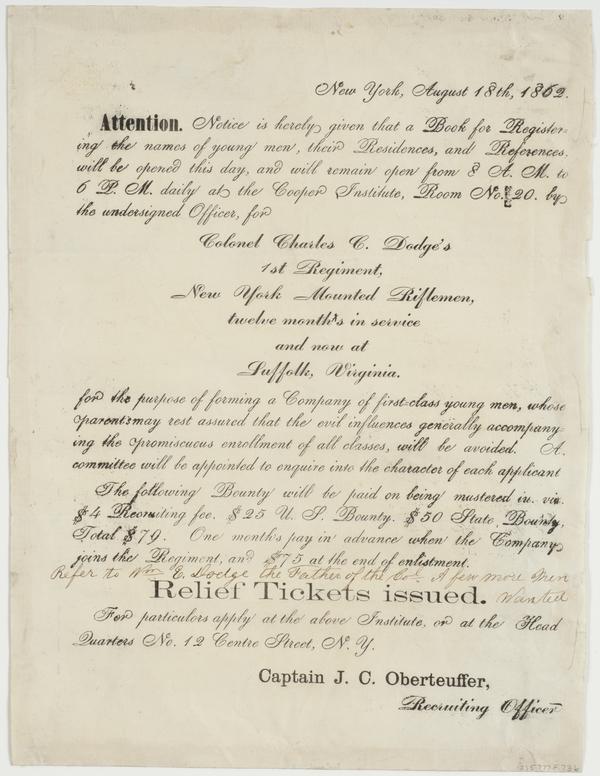 New York, August 18th, 1862.
Attention. Notice is hereby given that a Book for Register-
ing the names of young men, their Residences, and References,
will be opened this day, and will remain open from 8 A. M. to
6 P. M. daily at the Cooper Institute, Room No. 20. by
the undersigned Officer, for
Colonel Charles C. Dodge's
1st Regiment,
New York Mounted Riflemen,
twelve month's in service
and now at
Suffolk, Virginia.
for the purpose of forming a Company of first-class young men, whose
parents may rest assured that the evil influences generally accompany-
ing the promiscuous enrollment of all classes, will be avoided. A
committee will be appointed to enquire into the character of each applicant
The following Bounty will be paid on being mustered in. viz
$4 Recruiting fee. $25 U. S. Bounty. $50 State Bounty,
Total $79. One month's pay in advance when the Company
joins the Regiment, and $75 at the end of enlistment.
Refer to Wm E. Dodge the Father of the Col. A few more Men
Wanted
Relief Tickets issued.
For particulors apply at the above Institute, or at the Head
Quarters No. 12 Centre Street, N. Y.
Captain J. C. Oberteuffer,
Recruiting Officer